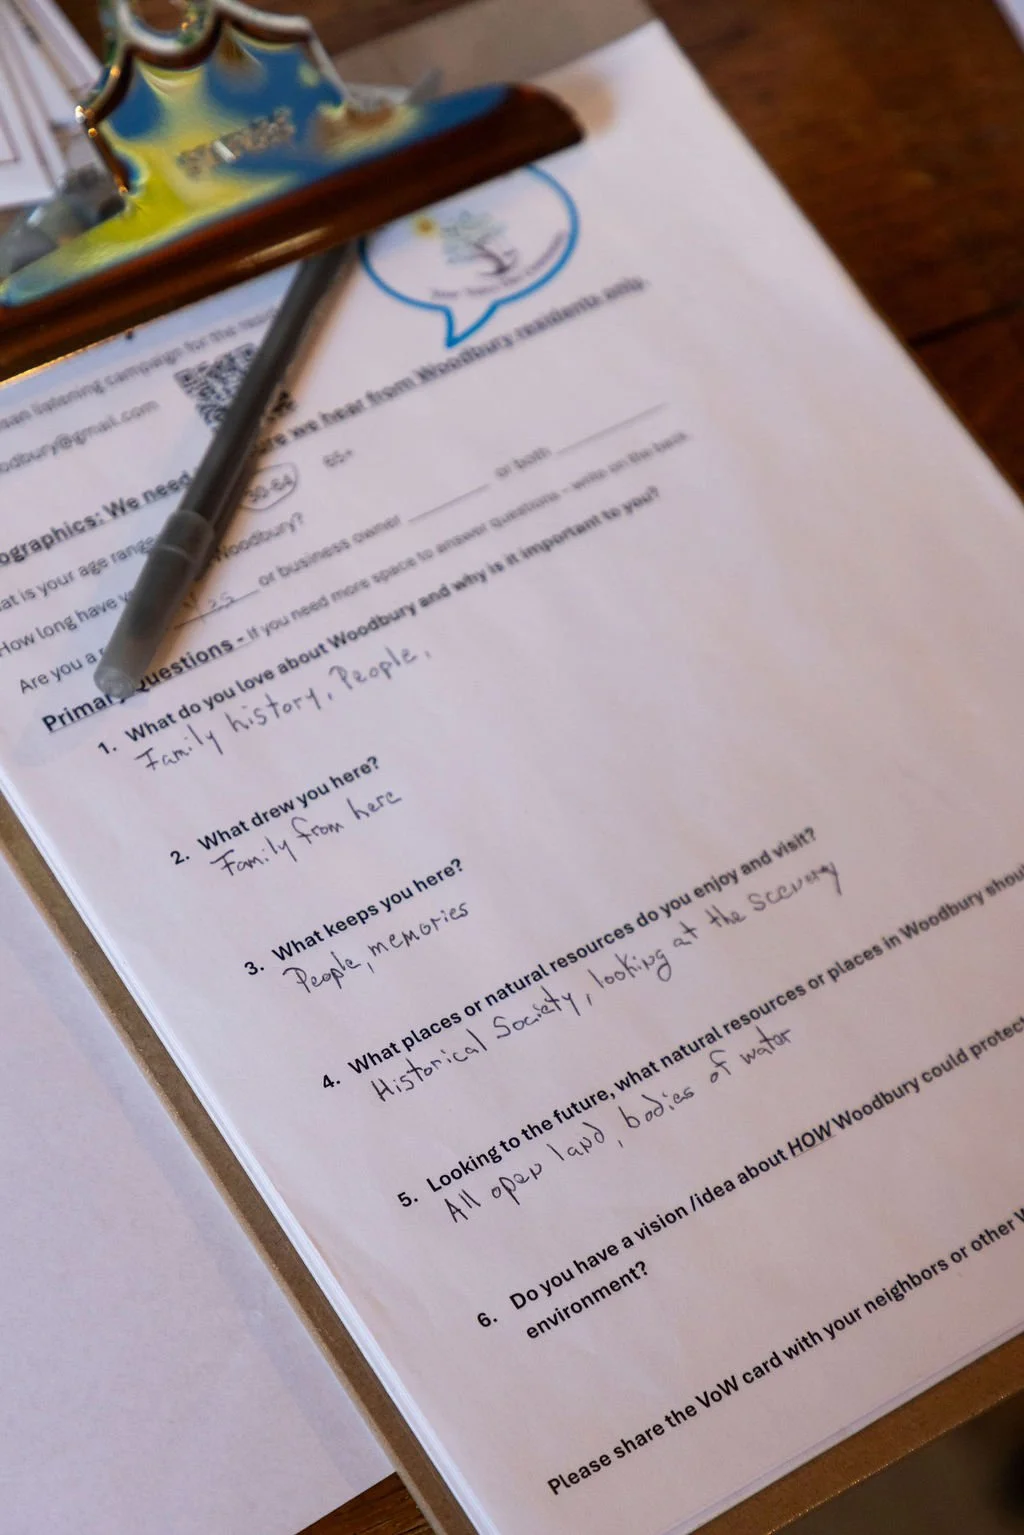 listening campaign for the
odbury@gmail.com
ographics: We need
re we hear from Woodbury residents only.
at is your age range
30-64
65+
How long have
Woodbury?
Are you a
or business owner
or both
Primary Questions - If you need more space to answer questions - write on the back.
1. What do you love about Woodbury and why is it important to you?
Family history, People,
2. What drew you here?
Family from here
3. What keeps you here?
People, memories
4. What places or natural resources do you enjoy and visit?
Historical Society, looking at the scenery
5. Looking to the future, what natural resources or places in Woodbury shoul
All open land, bodies of water
6. Do you have a vision /idea about HOW Woodbury could protect
environment?
Please share the VoW card with your neighbors or other W